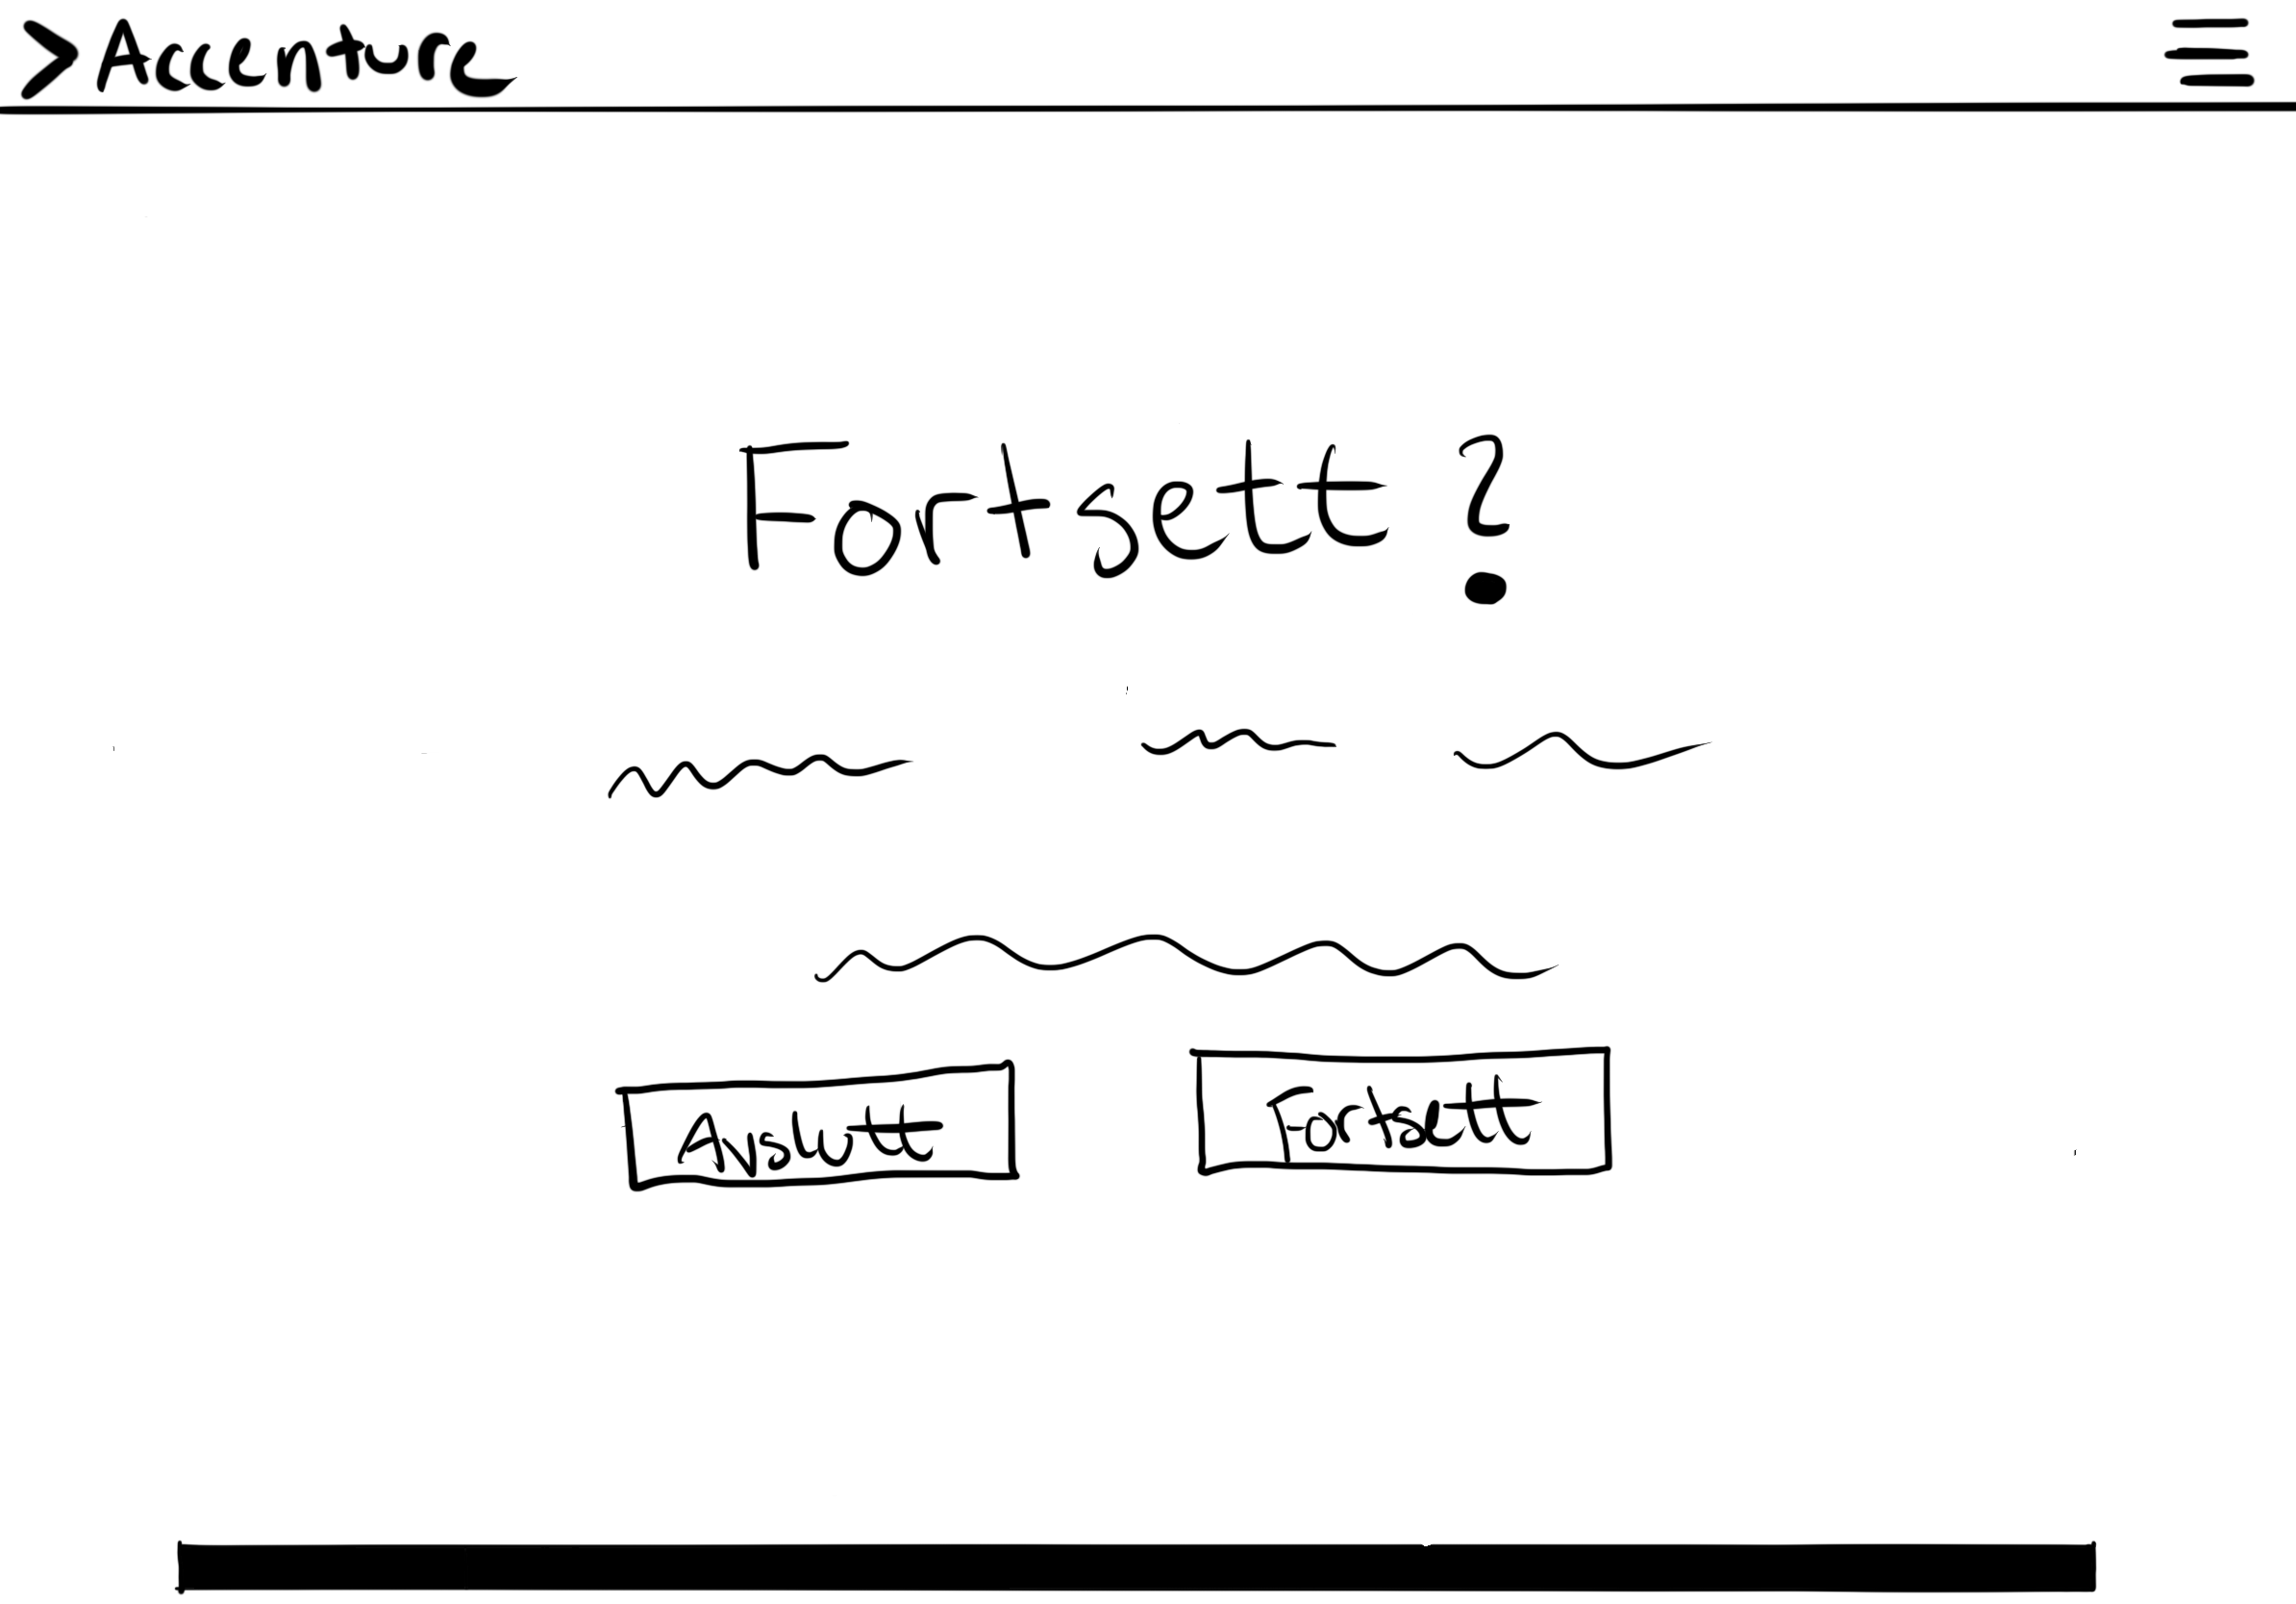 >Accenture
Fortsett ?
Avslutt
Fortsett